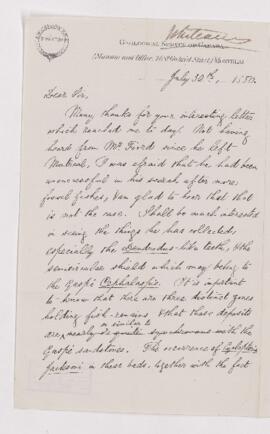 Whiteaves
GEOLOGICAL SURVEY OF CANADA,
(Museum and Office, 76 St. Gabriel Street) MONTREAL
July 30th, 1880.
Dear Sir,
Many thanks for your interesting letter
which reached me to day. Not having
heard from Mr Foord since he left
Montreal, I was afraid that he had been
unsuccessful in his search after more
fossil fishes, & am glad to hear that that
is not the case. I shall be much interested
in seeing the things he has collected,
especially the Dendrodus-like teeth, & the
semicircular shield which may belong to
the Gaspé Cephalaspis. It is important
to know that there are three distinct zones
holding fish-remains & that these deposits
are nearly or quite synchronous with the
or similar to
Gaspé sandstones. The occurrence of Cyclopteris
Jacksoni in these beds, together with the fact